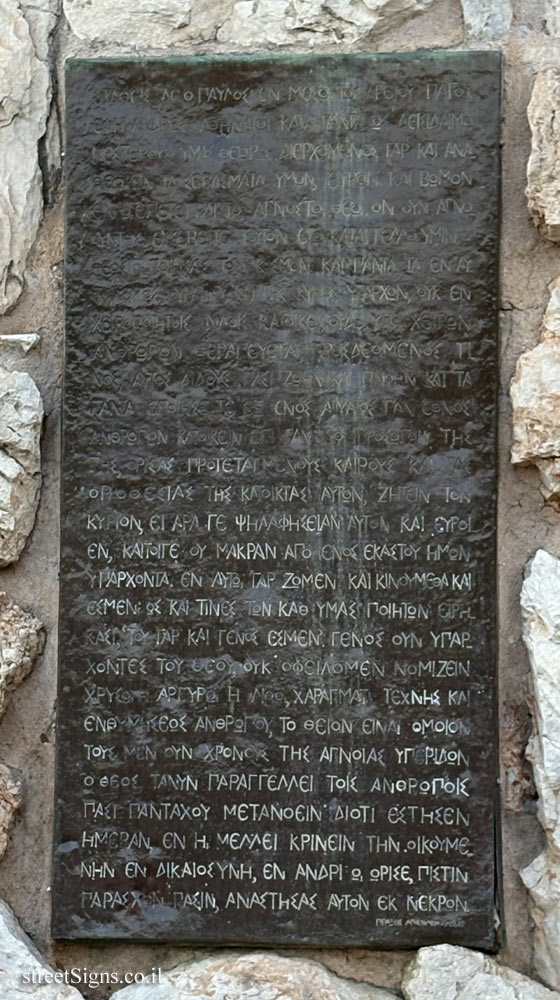 ΣΤΑΘΕΙΣ ΔΕ Ο ΠΑΥΛΟΣ ΕΝ ΜΕΣΩ ΤΟΥ ΑΡΕΙΟΥ ΠΑΓΟΥ,
ΑΝΔΡΕΣ ΑΘΗΝΑΙΟΙ ΚΑΤΑ ΠΑΝΤΑ ΩΣ ΔΕΙΣΙΔΑΙΜΟ
ΝΕΣΤΕΡΟΥΣ ΥΜΑΣ ΘΕΩΡΩ. ΔΙΕΡΧΟΜΕΝΟΣ ΓΑΡ ΚΑΙ ΑΝΑ
ΘΕΩΡΩΝ ΤΑ ΣΕΒΑΣΜΑΤΑ ΥΜΩΝ, ΕΥΡΟΝ ΚΑΙ ΒΩΜΟΝ
ΕΝ Ω ΕΠΕΓΕΓΡΑΠΤΟ ΑΓΝΩΣΤΩ ΘΕΩ. ΟΝ ΟΥΝ ΑΓΝΟ
ΟΥΝΤΕΣ ΕΥΣΕΒΕΙΤΕ ΤΟΥΤΟΝ ΕΓΩ ΚΑΤΑΓΓΕΛΛΩ ΥΜΙΝ.
ΤΟΝ ΚΟΣΜΟΝ ΚΑΙ ΠΑΝΤΑ ΤΑ ΕΝ ΑΥ
ΚΥΡΙΟΣ ΥΠΑΡΧΩΝ, ΟΥΚ ΕΝ
ΧΕΙΡΟΠΟΙΗΤΟΙΣ ΝΑΟΙΣ ΚΑΤΟΙΚΕΙ, ΟΥΔΕ ΥΠΟ ΧΕΙΡΩΝ
ΑΝΘΡΩΠΩΝ ΘΕΡΑΠΕΥΕΤΑΙ ΠΡΟΣΔΕΟΜΕΝΟΣ ΤΙ
ΝΟΣ, ΑΥΤΟΣ ΔΙΔΟΥΣ ΠΑΣΙ ΖΩΗΝ ΚΑΙ ΠΝΟΗΝ ΚΑΙ ΤΑ
ΠΑΝΤΑ ΕΠΟΙΗΣΕ ΤΕ ΕΞ ΕΝΟΣ ΑΙΜΑΤΟΣ ΠΑΝ ΕΘΝΟΣ
ΑΝΘΡΩΠΩΝ ΚΑΤΟΙΚΕΙΝ ΕΠΙ ΠΑΝ ΤΟ ΠΡΟΣΩΠΟΝ ΤΗΣ
ΓΗΣ ΟΡΙΣΑΣ ΠΡΟΤΕΤΑΓΜΕΝΟΥΣ ΚΑΙΡΟΥΣ ΚΑΙ ΤΑΣ
ΟΡΟΘΕΣΙΑΣ ΤΗΣ ΚΑΤΟΙΚΙΑΣ ΑΥΤΩΝ, ΖΗΤΕΙΝ ΤΟΝ
ΚΥΡΙΟΝ, ΕΙ ΑΡΑ ΓΕ ΨΗΛΑΦΗΣΕΙΑΝ ΑΥΤΟΝ ΚΑΙ ΕΥΡΟΙ
ΕΝ, ΚΑΙΤΟΙΓΕ ΟΥ ΜΑΚΡΑΝ ΑΠΟ ΕΝΟΣ ΕΚΑΣΤΟΥ ΗΜΩΝ
ΥΠΑΡΧΟΝΤΑ. ΕΝ ΑΥΤΩ ΓΑΡ ΖΩΜΕΝ ΚΑΙ ΚΙΝΟΥΜΕΘΑ ΚΑΙ
ΕΣΜΕΝ ΩΣ ΚΑΙ ΤΙΝΕΣ ΤΩΝ ΚΑΘ ΥΜΑΣ ΠΟΙΗΤΩΝ ΕΙΡΗ
ΚΑΣΙ. ΤΟΥ ΓΑΡ ΚΑΙ ΓΕΝΟΣ ΕΣΜΕΝ. ΓΕΝΟΣ ΟΥΝ ΥΠΑΡ
ΧΟΝΤΕΣ ΤΟΥ ΘΕΟΥ, ΟΥΚ ΟΦΕΙΛΟΜΕΝ ΝΟΜΙΖΕΙΝ
ΧΡΥΣΩ Η ΑΡΓΥΡΩ Η ΛΙΘΩ, ΧΑΡΑΓΜΑΤΙ ΤΕΧΝΗΣ ΚΑΙ
ΕΝΘΥΜΗΣΕΩΣ ΑΝΘΡΩΠΟΥ, ΤΟ ΘΕΙΟΝ ΕΙΝΑΙ ΟΜΟΙΟΝ
ΤΟΥΣ ΜΕΝ ΟΥΝ ΧΡΟΝΟΥΣ ΤΗΣ ΑΓΝΟΙΑΣ ΥΠΕΡΙΔΩΝ
Ο ΘΕΟΣ ΤΑΝΥΝ ΠΑΡΑΓΓΕΛΛΕΙ ΤΟΙΣ ΑΝΘΡΩΠΟΙΣ
ΠΑΣΙ ΠΑΝΤΑΧΟΥ ΜΕΤΑΝΟΕΙΝ ΔΙΟΤΙ ΕΣΤΗΣΕΝ
ΗΜΕΡΑΝ, ΕΝ Η, ΜΕΛΛΕΙ ΚΡΙΝΕΙΝ ΤΗΝ ΟΙΚΟΥΜΕ
ΝΗΝ ΕΝ ΔΙΚΑΙΟΣΥΝΗ, ΕΝ ΑΝΔΡΙ Ω, ΩΡΙΣΕ, ΠΙΣΤΙΝ
ΠΑΡΑΣΧΩΝ ΠΑΣΙΝ, ΑΝΑΣΤΗΣΑΣ ΑΥΤΟΝ ΕΚ ΝΕΚΡΩΝ.
streetSigns.co.il